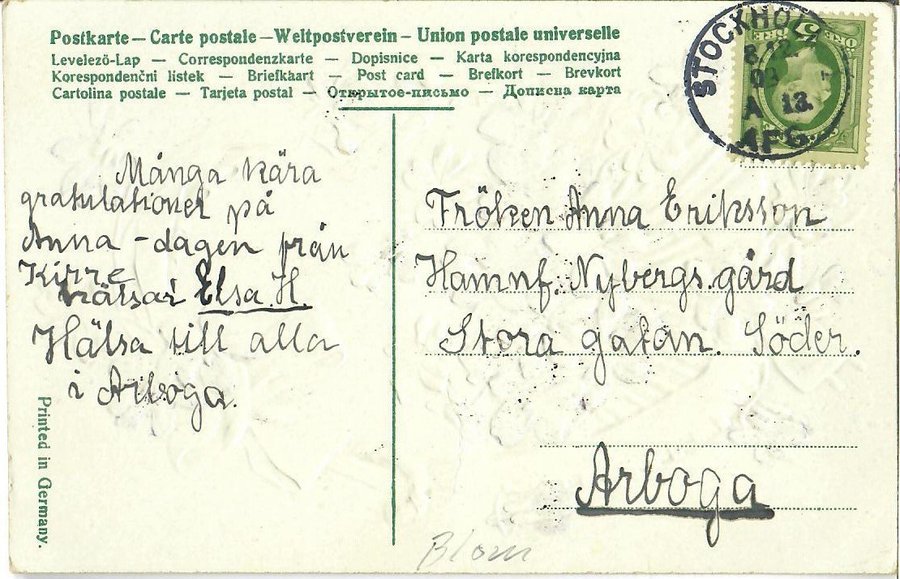 Postkarte — Carte postale — Weltpostverein — Union postale universelle
Levelező-Lap — Correspondenzkarte — Dopisnice — Karta korespondencyjna
Korespondenční listek — Briefkaart — Post card — Brefkort — Brevkort
Cartolina postale — Tarjeta postal — Открытое-письмо — Дописна карта
STOCKHOLM
A 13.
AFG.
5
ÖRE
Många kära
gratulationer på
Anna-dagen från
Kirre
hälsar Elsa. H.
Hälsa till alla
i Arboga.
Fröken Anna Eriksson
Hamnf. Nybergs. gård
Stora gatan. Söder.
Arboga
Printed in Germany.
Blom